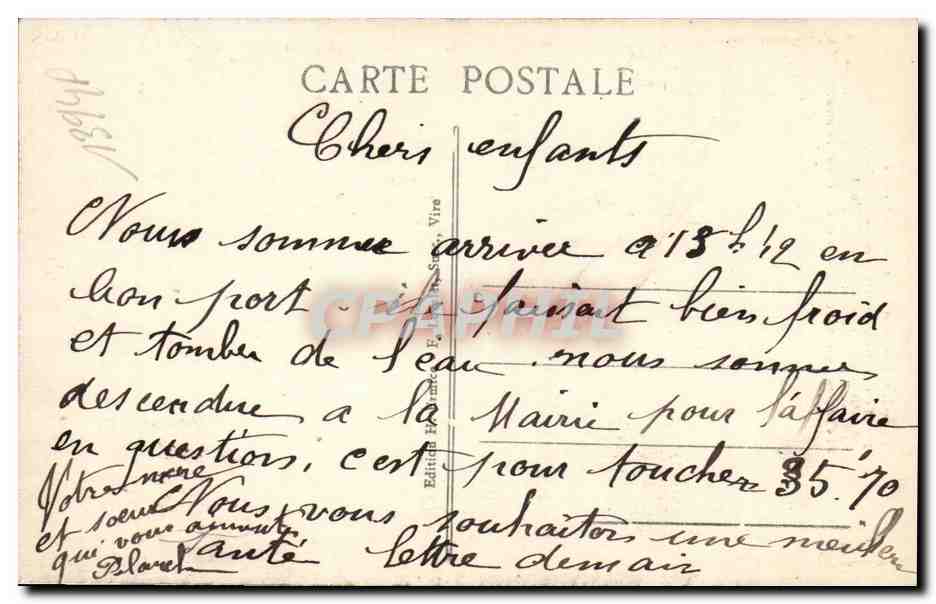 CARTE POSTALE
1944P
Chers enfants
Nous sommes arriver a 13 h 12 en
bon port. ile faisait bien froid
et tomber de l'eau. nous sommes
descendue a la Mairie pour l'affaire
en questions, c'est pour toucher 35.70
Nous vous souhaitons une meilleure
santé lettre demain
Votre mère
et soeur
qui vous aiment
Blanch
Edition H. F. Succ., Vire
CPAPHIL